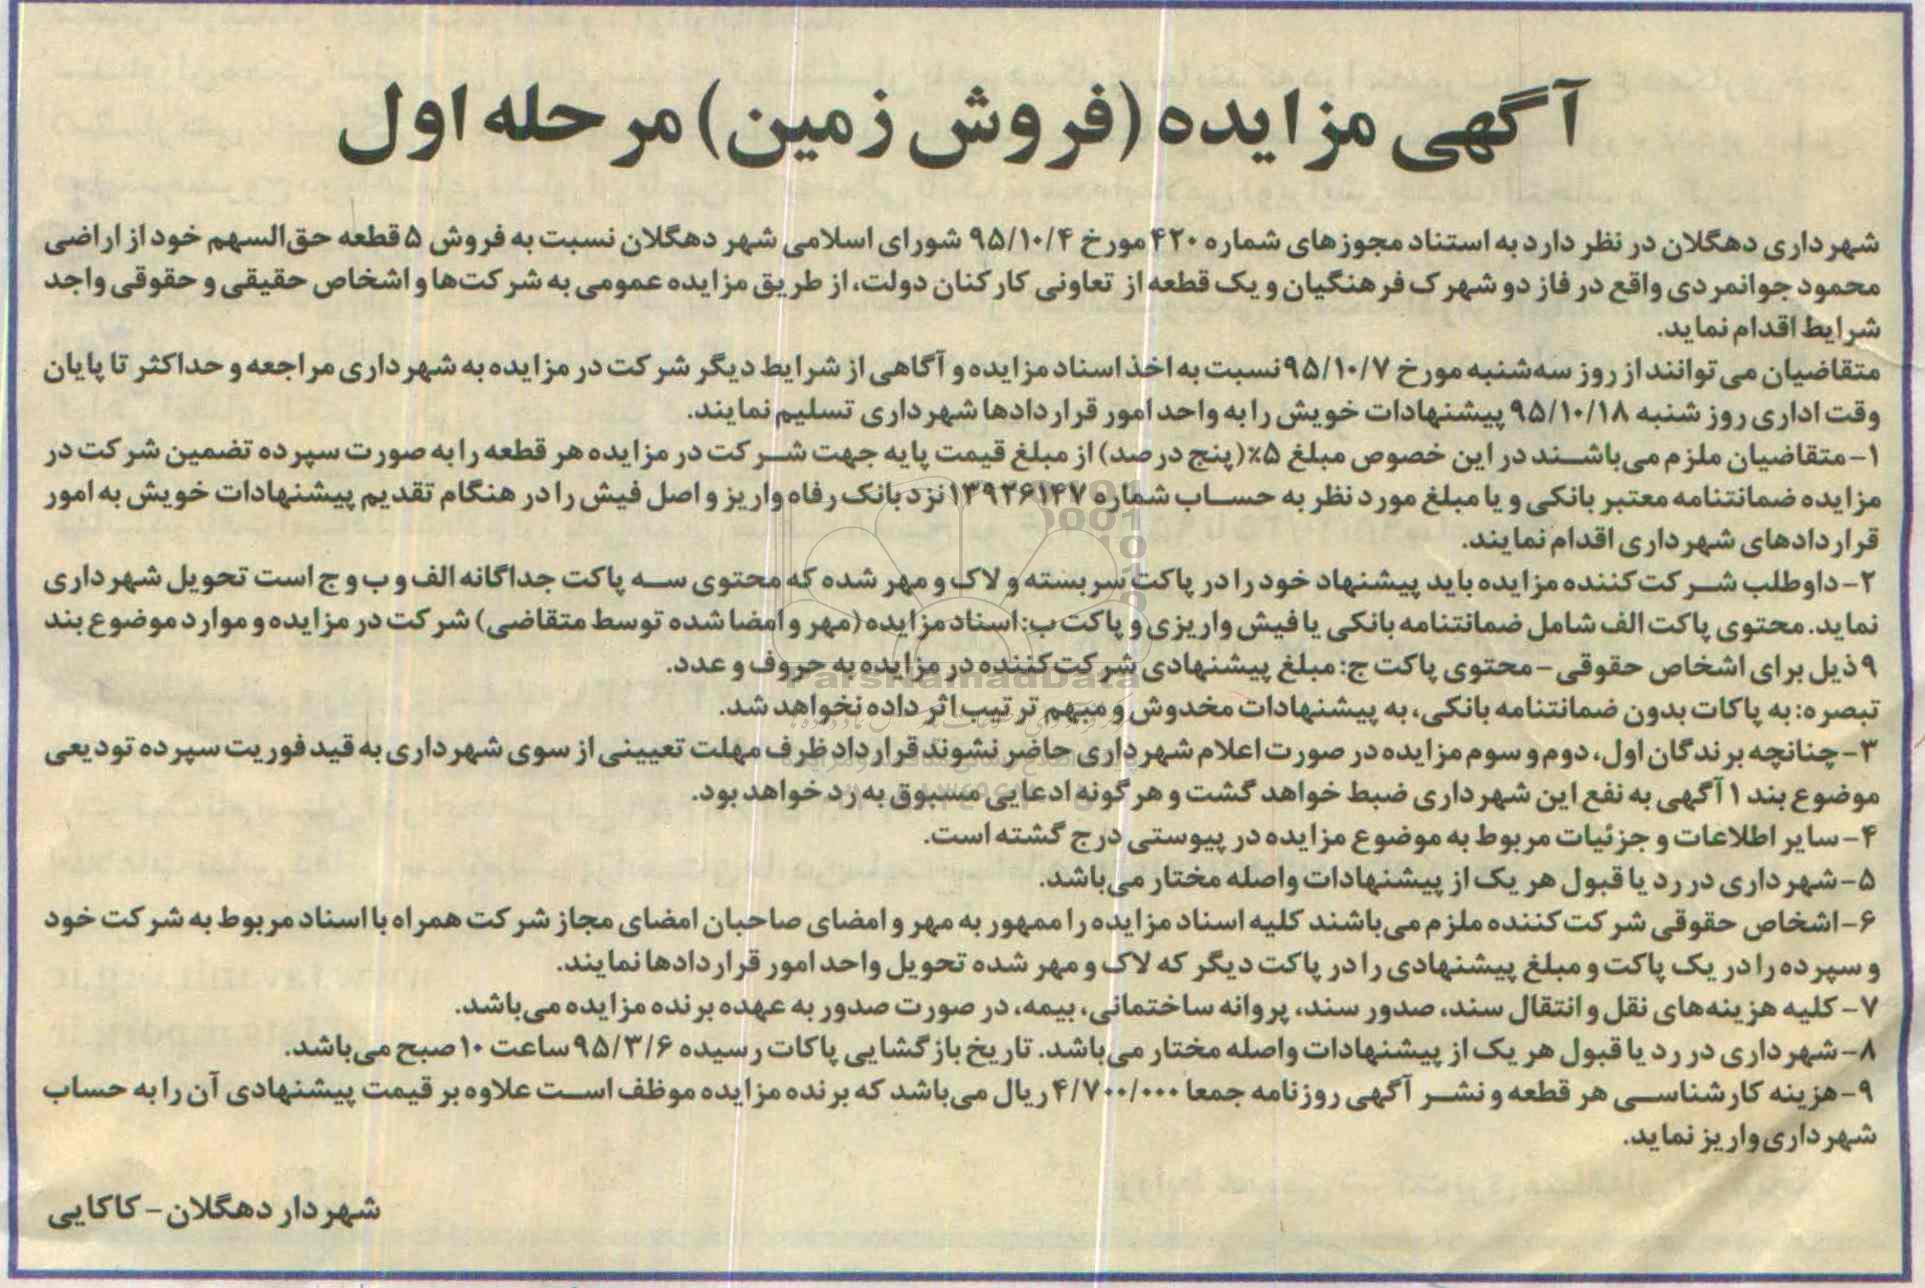 آگهی مزایده (فروش زمین) مرحله اول
شهرداری دهگلان در نظر دارد به استناد مجوزهای شماره ۴۲۰ مورخ ۹۵/۱۰/۴ شورای اسلامی شهر دهگلان نسبت به فروش ۵ قطعه حق‌السهم خود از اراضی
محمود جوانمردی واقع در فاز دو شهرک فرهنگیان و یک قطعه از تعاونی کارکنان دولت، از طریق مزایده عمومی به شرکت‌ها و اشخاص حقیقی و حقوقی واجد
شرایط اقدام نماید.
متقاضیان می توانند از روز سه‌شنبه مورخ ۹۵/۱۰/۷ نسبت به اخذ اسناد مزایده و آگاهی از شرایط دیگر شرکت در مزایده به شهرداری مراجعه و حداکثر تا پایان
وقت اداری روز شنبه ۹۵/۱۰/۱۸ پیشنهادات خویش را به واحد امور قراردادها شهرداری تسلیم نمایند.
۱- متقاضیان ملزم می‌باشند در این خصوص مبلغ ۵٪ (پنج درصد) از مبلغ قیمت پایه جهت شرکت در مزایده هر قطعه را به صورت سپرده تضمین شرکت در
مزایده ضمانتنامه معتبر بانکی و یا مبلغ مورد نظر به حساب شماره ۱۳۹۲۶۱۴۷ نزد بانک رفاه واریز و اصل فیش را در هنگام تقدیم پیشنهادات خویش به امور
قراردادهای شهرداری اقدام نمایند.
۲- داوطلب شرکت‌کننده مزایده باید پیشنهاد خود را در پاکت سربسته و لاک و مهر شده که محتوی سه پاکت جداگانه الف و ب و ج است تحویل شهرداری
نماید. محتوی پاکت الف شامل ضمانتنامه بانکی یا فیش واریزی و پاکت ب: اسناد مزایده (مهر و امضا شده توسط متقاضی) شرکت در مزایده و موارد موضوع بند
۹ ذیل برای اشخاص حقوقی - محتوی پاکت ج: مبلغ پیشنهادی شرکت‌کننده در مزایده به حروف و عدد.
تبصره: به پاکات بدون ضمانتنامه بانکی، به پیشنهادات مخدوش و مبهم ترتیب اثر داده نخواهد شد.
۳- چنانچه برندگان اول، دوم و سوم مزایده در صورت اعلام شهرداری حاضر نشوند قرارداد ظرف مهلت تعیینی از سوی شهرداری به قید فوریت سپرده تودیعی
موضوع بند ۱ آگهی به نفع این شهرداری ضبط خواهد گشت و هرگونه ادعایی مسبوق به رد خواهد بود.
۴- سایر اطلاعات و جزئیات مربوط به موضوع مزایده در پیوستی درج گشته است.
۵- شهرداری در رد یا قبول هر یک از پیشنهادات واصله مختار می‌باشد.
۶- اشخاص حقوقی شرکت‌کننده ملزم می‌باشند کلیه اسناد مزایده را ممهور به مهر و امضای صاحبان امضای مجاز شرکت همراه با اسناد مربوط به شرکت خود
و سپرده را در یک پاکت و مبلغ پیشنهادی را در پاکت دیگر که لاک و مهر شده تحویل واحد امور قراردادها نمایند.
۷- کلیه هزینه‌های نقل و انتقال سند، صدور سند، پروانه ساختمانی، بیمه، در صورت صدور به عهده برنده مزایده می‌باشد.
۸- شهرداری در رد یا قبول هر یک از پیشنهادات واصله مختار می‌باشد. تاریخ بازگشایی پاکات رسیده ۹۵/۳/۶ ساعت ۱۰ صبح می‌باشد.
۹- هزینه کارشناسی هر قطعه و نشر آگهی روزنامه جمعا ۴/۷۰۰/۰۰۰ ریال می‌باشد که برنده مزایده موظف است علاوه بر قیمت پیشنهادی آن را به حساب
شهرداری واریز نماید.
شهردار دهگلان - کاکایی
ParsNamadData